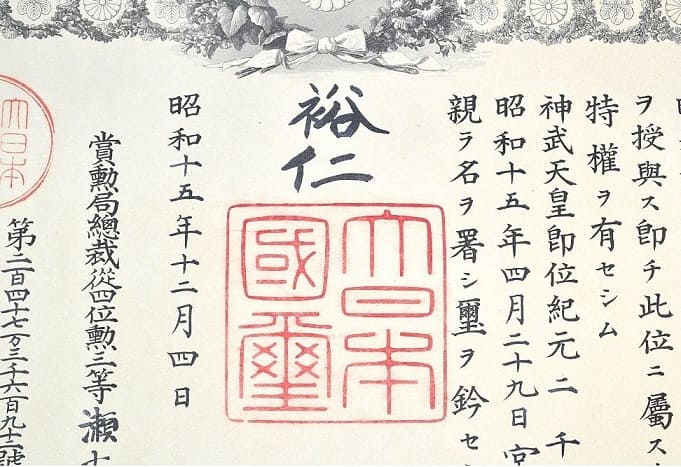 ヲ授與ス即チ此位ニ屬ス
特權ヲ有セシム
神武天皇即位紀元二千
昭和十五年四月二十九日宮
親ラ名ヲ署シ璽ヲ鈐セ
裕仁
大日本
國璽
昭和十五年十二月四日
賞勲局總裁從四位勲三等瀬
第二百四十七万三千六百九十二號
大日本